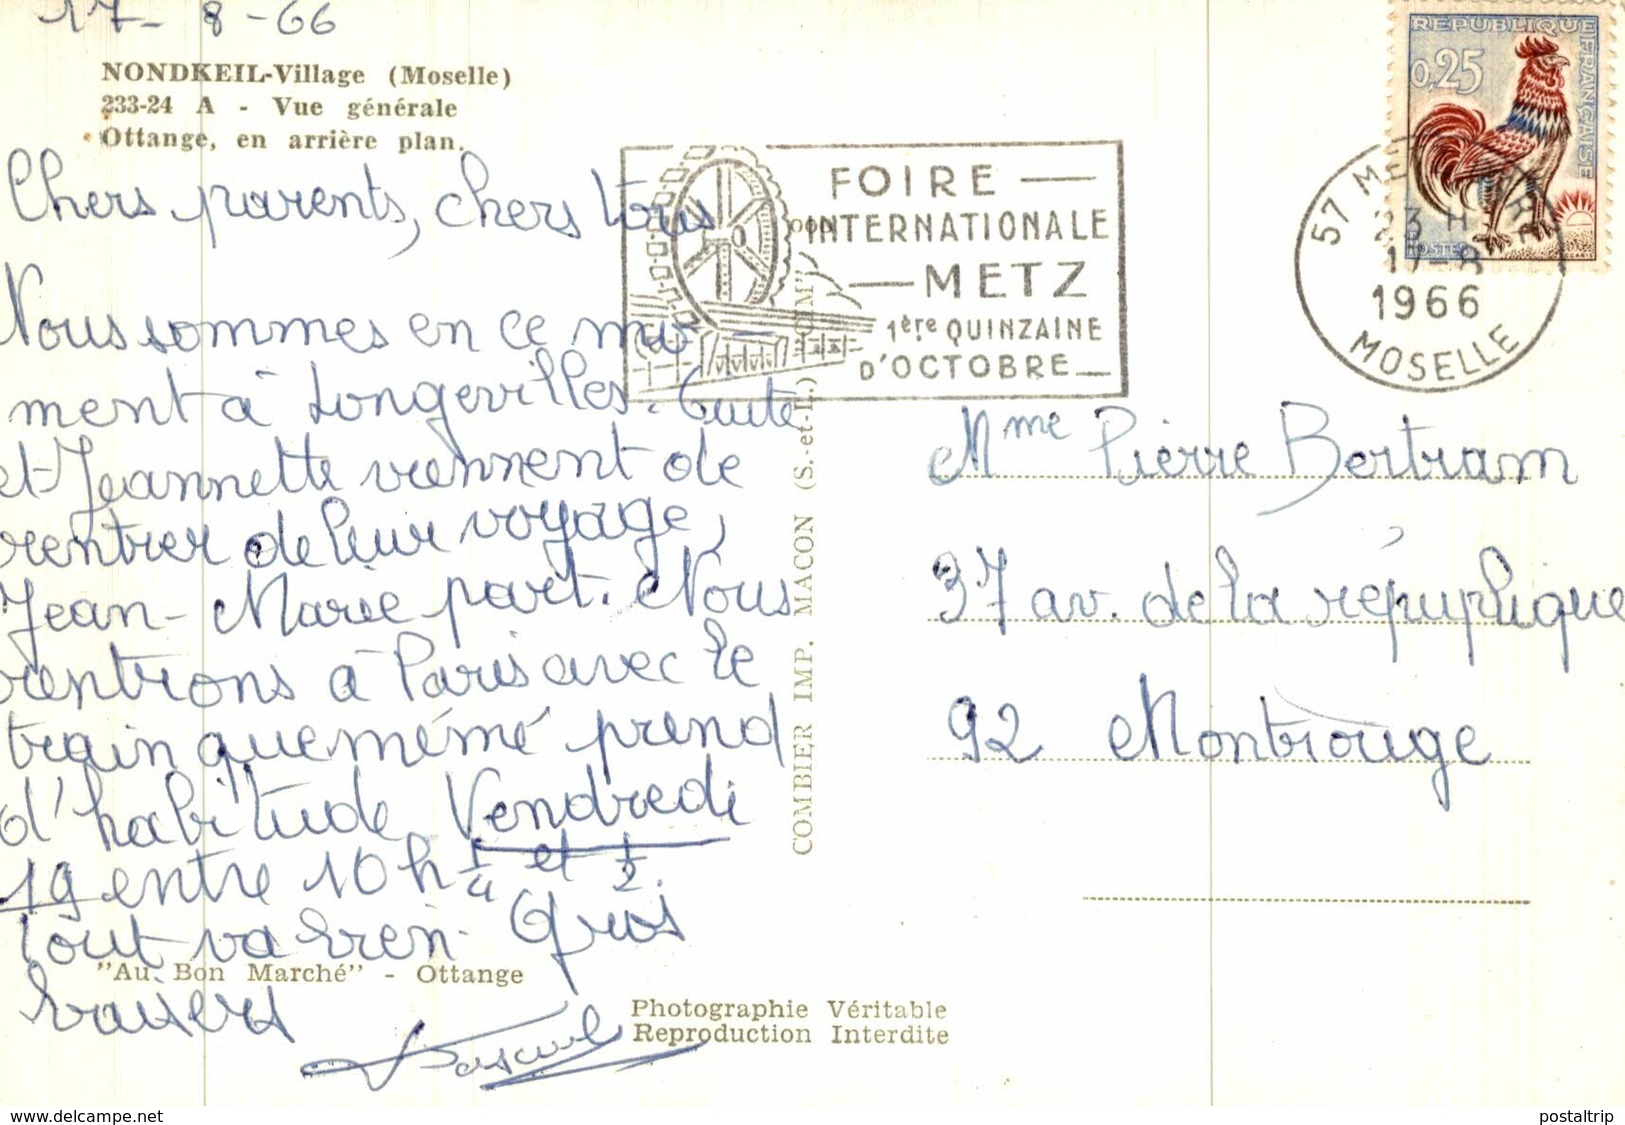 17-8-66
NONDKEIL-Village (Moselle)
233-24 A - Vue générale
Ottange, en arrière plan.
Chers parents, chers tous
Nous sommes en ce mo-
ment à Longevilles. Tuite
et Jeannette viennent de
rentrer de leur voyage,
Jean-Marie part. Nous
rentrons à Paris avec le
train que mémé prend
d'habitude Vendredi
19 entre 10h 1/4 et 1/2.
Tout va bien. Gros
baisers
Pascal
"Au Bon Marché" - Ottange
Photographie Véritable
Reproduction Interdite
COMBIER IMP. MACON (S.-et-L.) "CIM"
FOIRE
INTERNATIONALE
METZ
1ère QUINZAINE
D'OCTOBRE
REPUBLIQUE FRANÇAISE
0,25
POSTES
57 METZ GARE
23 H
17-8
1966
MOSELLE
Mme Pierre Bertram
37 av. de la répuplique
92 Montrouge
postaltrip
www.delcampe.net